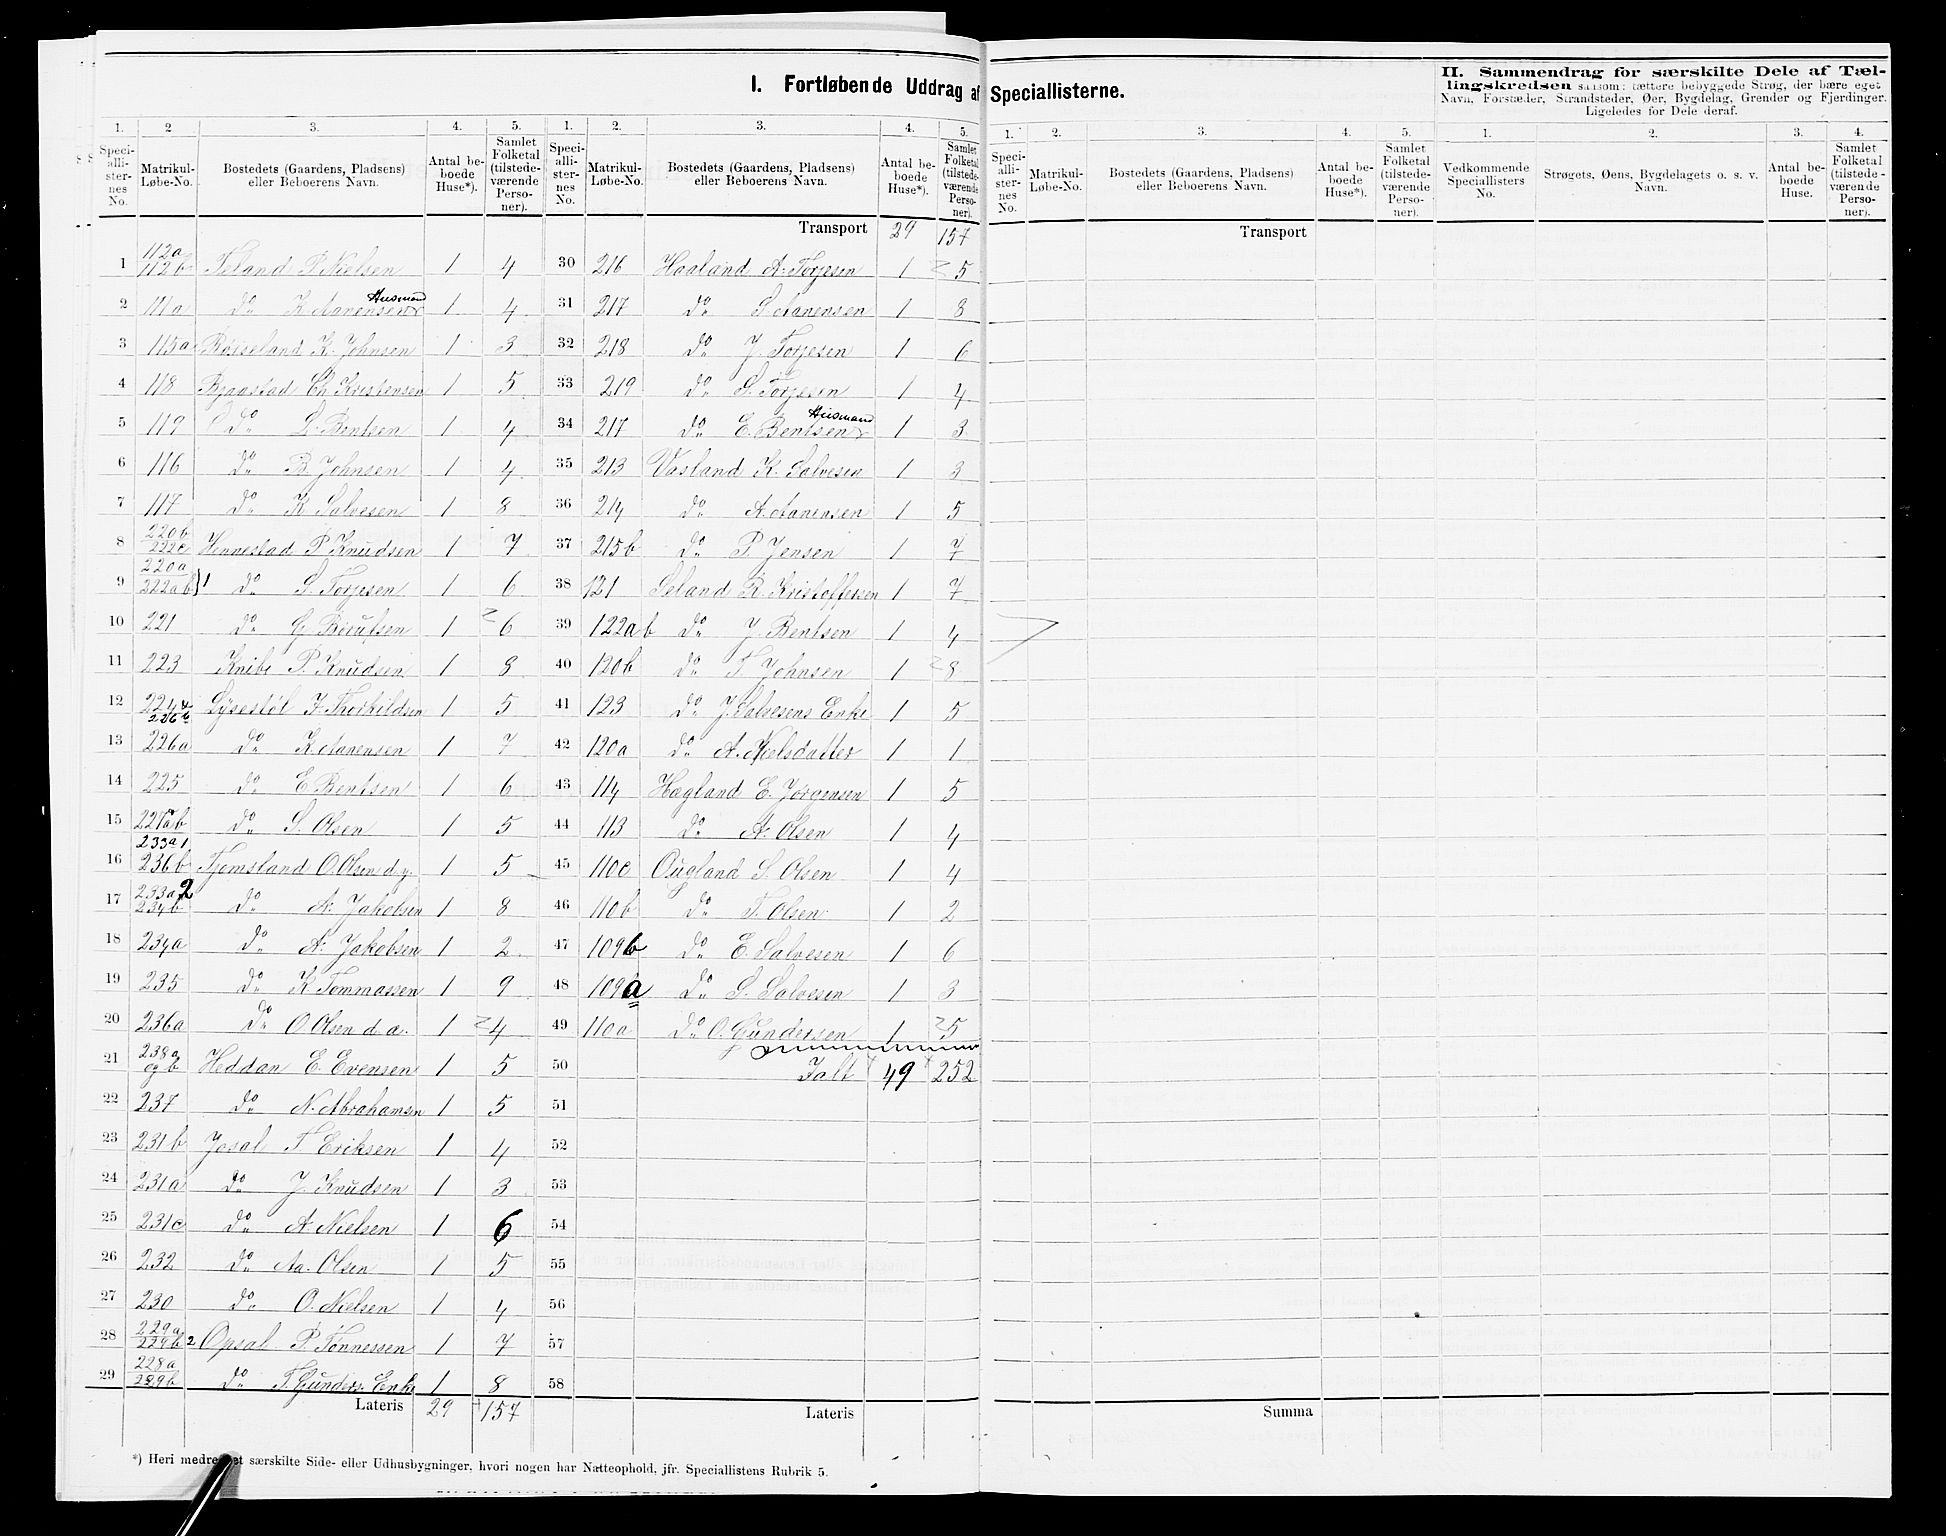 I. Fortløbende Uddrag af Speciallisterne.
II. Sammendrag for særskilte Dele af Tæl-
lingskredsen saasom: tættere bebyggede Strøg, der bære eget
Navn, Forstæder, Strandsteder, Øer, Bygdelag, Grender og Fjerdinger.
Ligeledes for Dele deraf.
1. 2 3. 4. 5. 1. 2. 3. 4. 5. 1. 2. 3. 4. 5. 1. 2. 3. 4.
Speci-alli-ster-nes No. Matrikul-Løbe-No. Bostedets (Gaardens, Pladsens) eller Beboerens Navn. Antal be-boede Huse*). Samlet Folketal (tilstede-værende Perso-ner).
Speci-alli-ster-nes No. Matrikul-Løbe-No. Bostedets (Gaardens, Pladsens) eller Beboerens Navn. Antal be-boede Huse*). Samlet Folketal (tilstede-værende Perso-ner).
Speci-alli-ster-nes No. Matrikul-Løbe-No. Bostedets (Gaardens, Pladsens) eller Beboerens Navn. Antal be-boede Huse*). Samlet Folketal (tilstede-værende Perso-ner).
Vedkommende Speciallisters No. Strøgets, Øens, Bygdelagets o. s. v. Navn. Antal be-boede Huse. Samlet Folketal (tilstede-værende Perso-ner).
1 112a 112b Feland P. Nielsen 1 4
2 111a do K. Aanensen Husmand 1 4
3 115a Røiseland K. Johnsen 1 3
4 118 Bjaastad Ch. Kristensen 1 5
5 119 do L. Bentsen 1 4
6 116 do B. Johnsen 1 4
7 117 do K. Salvesen 1 8
8 220b 222c Hennestad P. Knudsen 1 7
9 220a 222ab 1 do S. Torjesen 1 6
10 221 do G. Beruldsen 1 6
11 223 Knibe P. Knudsen 1 8
12 224 226b Lysestøl F. Thorkildsen 1 5
13 226a do K. Aanensen 1 7
14 225 do E. Bentsen 1 6
15 227ab do S. Olsen 1 5
16 233a1 236b Tjomsland O. Olsen d.y. 1 5
17 233a2 234b do A. Jakobsen 1 8
18 234a do A. Jakobsen 1 2
19 235 do K. Tommassen 1 9
20 236a do O. Olsen d. æ. 1 4
21 238a og b Heddan E. Evensen 1 5
22 237 do N. Abrahamsen 1 5
23 231b Josal T. Eriksen 1 4
24 231a do J. Knudsen 1 3
25 231c do A. Nielsen 1 6
26 232 do Aa. Olsen 1 5
27 230 do O. Nielsen 1 4
28 229a 229b2 Opsal P. Tønnessen 1 7
29 228a 229b do T. Gunders. Enke 1 8
Lateris 29 157
Transport 29 157
30 216 Haaland A. Torjesen 1 5
31 217 do S. Aanensen 1 8
32 218 do J. Torjesen 1 6
33 219 do S. Torjesen 1 4
34 217 do E. Bentsen Husmand 1 3
35 213 Vasland K. Salvesen 1 3
36 214 do A. Aanensen 1 5
37 215b do P. Jensen 1 7
38 121 Seland R. Kristoffersen 1 7
39 122ab do J. Bentsen 1 4
40 120b do T. Johnsen 1 8
41 123 do J. Salvesens Enke 1 5
42 120a do A. Nielsdatter 1 1
43 114 Hægland E. Jørgensen 1 5
44 113 do A. Olsen 1 4
45 110c Øugland S. Olsen 1 4
46 110b do T. Olsen 1 2
47 109b do E. Salvesen 1 6
48 109a do S. Salvesen 1 3
49 110a do O. Gundersen 1 5
50 Ialt 49 252
51
52
53
54
55
56
57
58
Lateris
Transport
Summa
*) Heri medregnet særskilte Side- eller Udhusbygninger, hvori nogen har Natteophold, jfr. Speciallistens Rubrik 5.